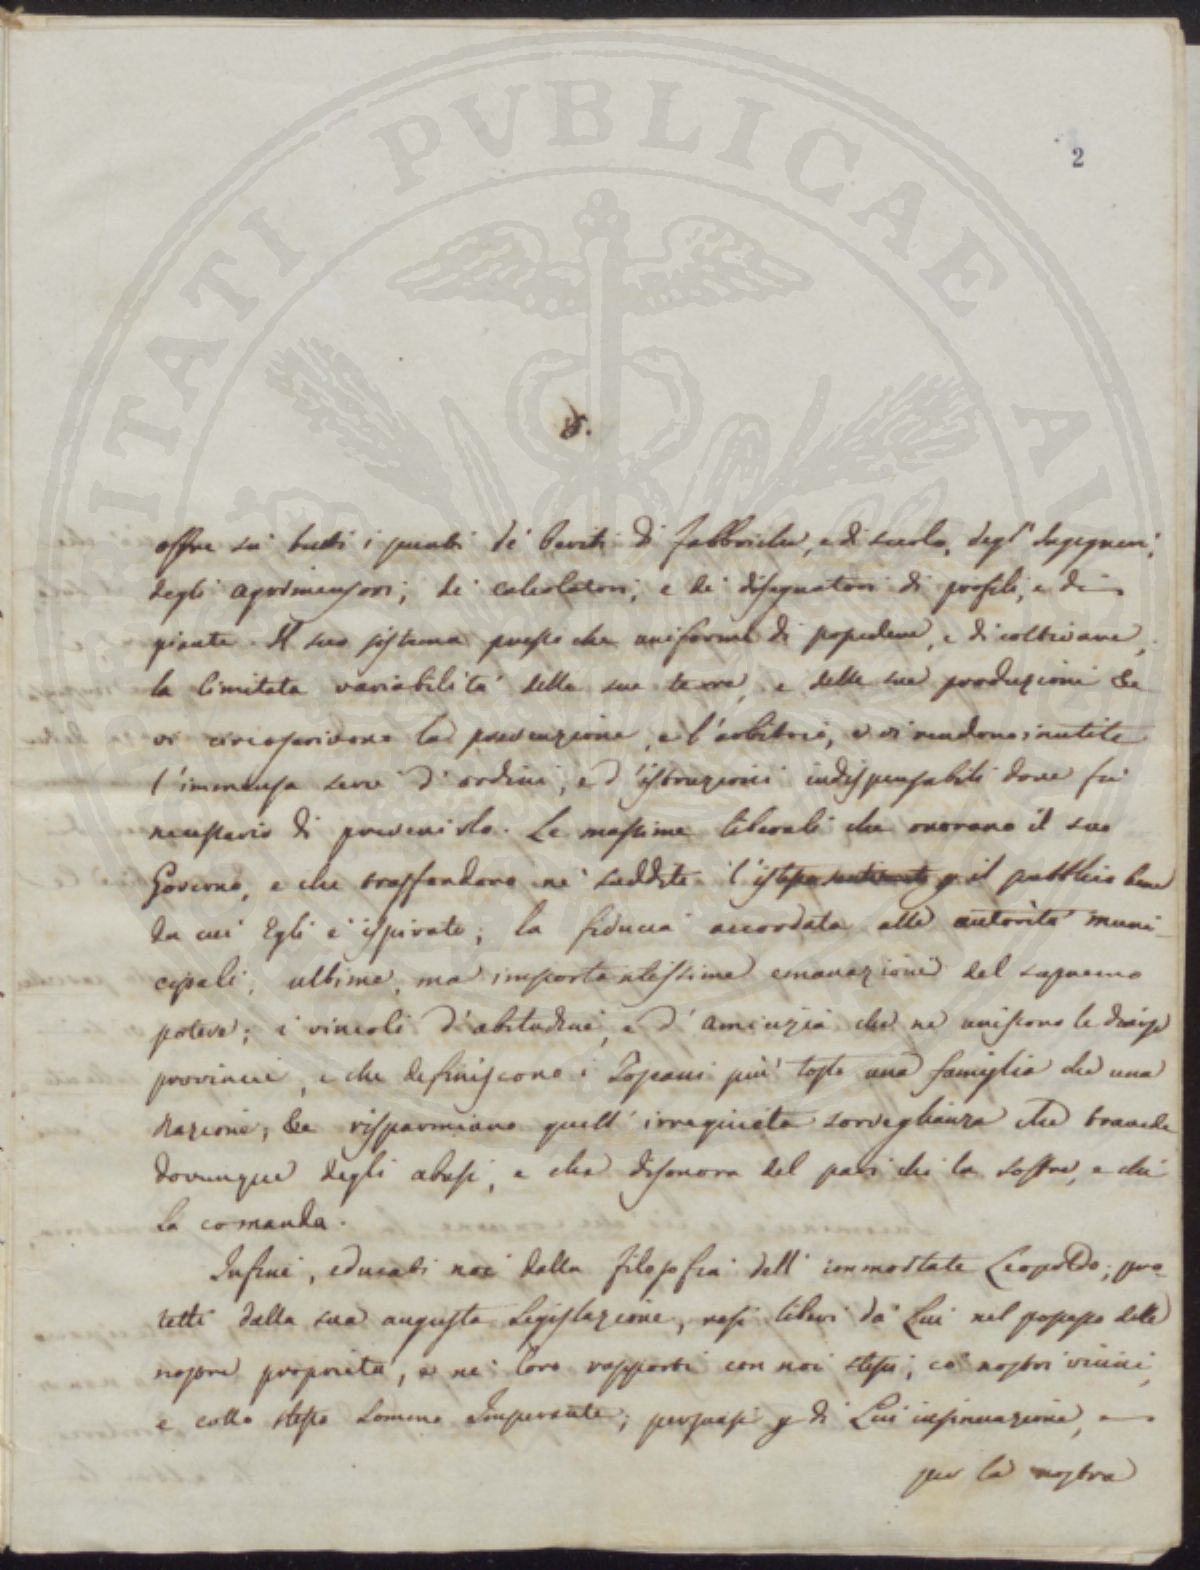 2
5.
offre su' tutti i punti de' Periti di fabbriche, e di suolo, degl' Ingegneri,
degli agrimensori, de' calcolatori, e de' disegnatori di profili, e di
piante. Il suo sistema presso che uniforme di possedere, e di coltivare,
la limitata variabilità delle sue terre, e delle sue produzioni &c
vi circoscrivono la prevenzione, e l'arbitrio, e vi rendono inutile
l'immensa serie d'ordini, e d'istruzioni indispensabili dove fu
necessario di prevenirlo. Le massime liberali che onorano il suo
Governo, e che trasfondono ne' sudditi l'istesso sentimento p il pubblico bene
da cui Egli è ispirato; la fiducia accordata alle autorità muni-
cipali, ultime, ma importantissime emanazioni del supremo
potere; i vincoli d'abitudine, e d'amicizia che ne uniscono le diverse
provincie, e che definiscono i Toscani piu' tosto una famiglia che una
nazione; &c risparmiano quell' irrequieta sorveglianza che travede
dovunque degli abusi, e che disonora del pari chi la soffre, e chi
la comanda.
Infine, educati noi dalla filosofia dell' immortale Leopoldo; pro-
tetti dalla sua augusta Legislazione, resi liberi da Lui nel possesso delle
nostre proprietà, e ne' loro rapporti con noi stessi, co' nostri vicini,
e collo stesso Sommo Imperante; persuasi p di Lui insinuazione, e
per la nostra
PVBLICAE